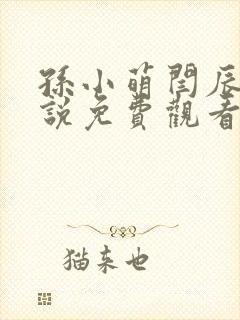 孫小萌閆辰
說免費觀看
猫来也